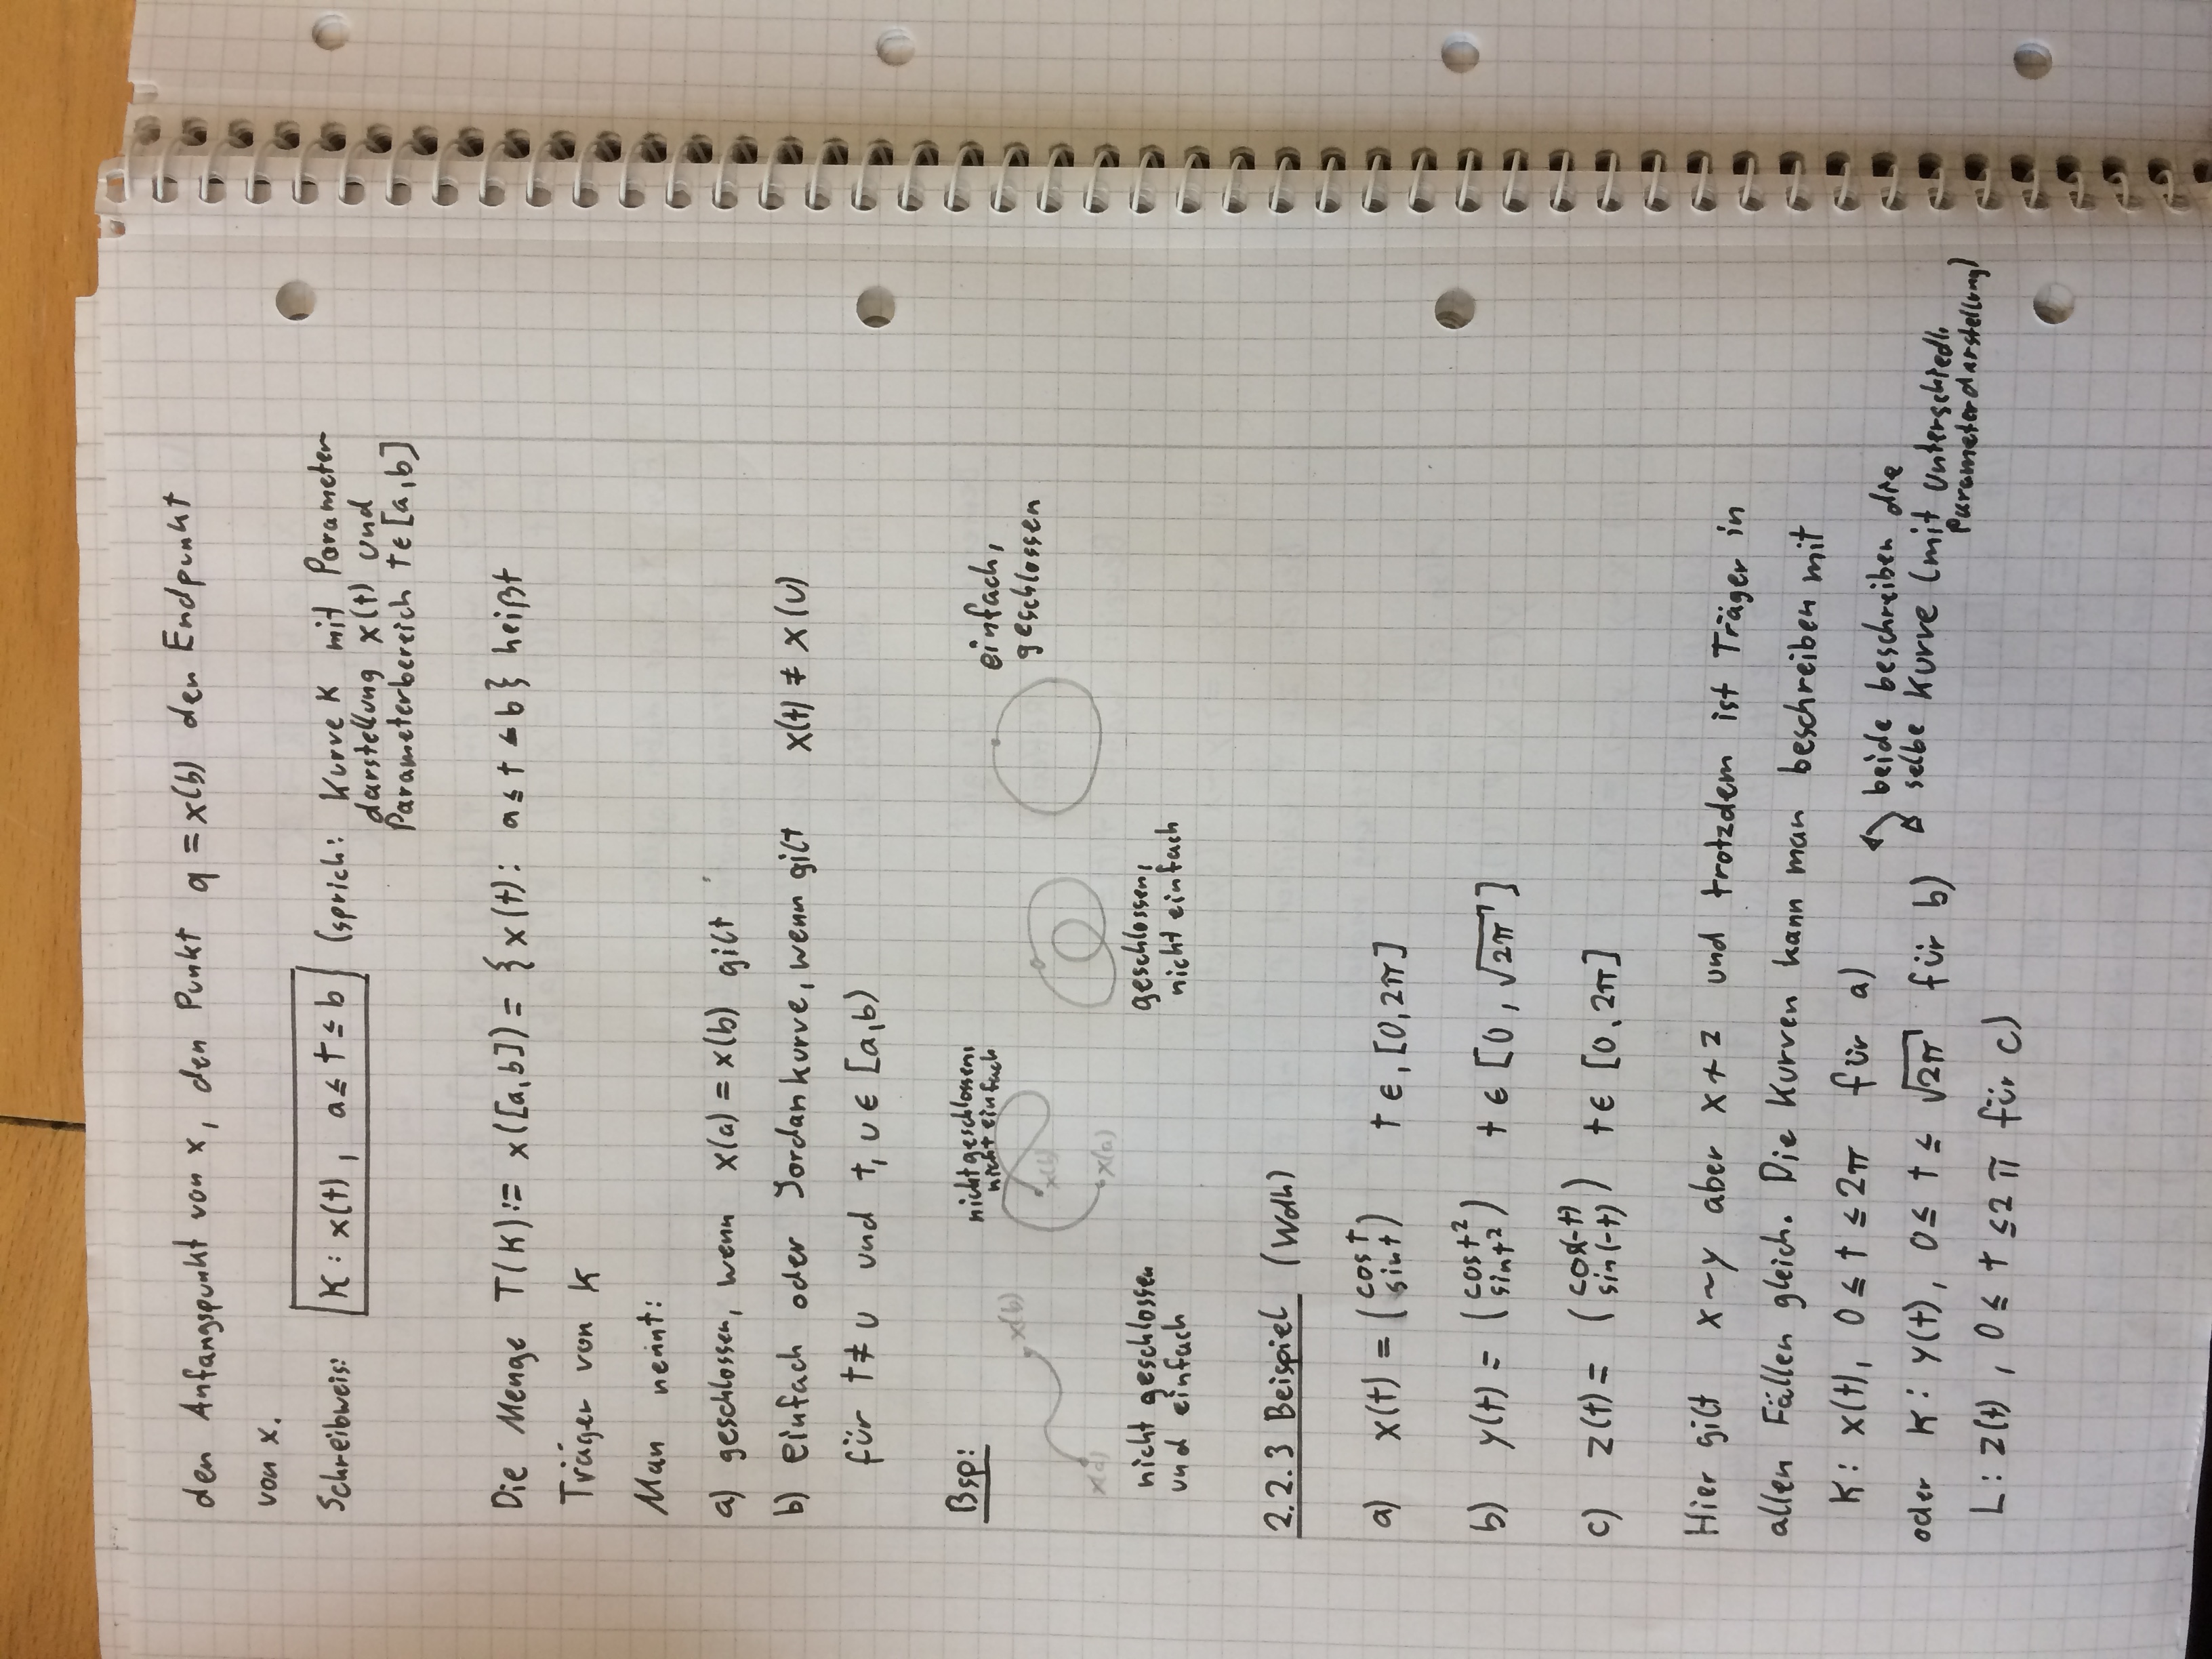 den Anfangspunkt von x, den Punkt q = x(b) den Endpunkt
von x.
Schreibweis: K: x(t), a ≤ t ≤ b (sprich: Kurve K mit Parameter
darstellung x(t) und
Parameterbereich t ∈ [a,b]
Die Menge T(K) := x([a,b]) = {x(t): a ≤ t ≤ b} heißt
Träger von K
Man nennt:
a) geschlossen, wenn x(a) = x(b) gilt
b) einfach oder Jordankurve, wenn gilt x(t) ≠ x(u)
für t ≠ u und t, u ∈ [a,b)
Bsp:
x(a)
x(b)
nicht geschlossen
und einfach
nicht geschlossen,
nicht einfach
x(b)
x(a)
geschlossen,
nicht einfach
einfach,
geschlossen
2.2.3 Beispiel (Wdh)
a) x(t) = (cos t
sin t) t ∈, [0, 2π]
b) y(t) = (cos t²
sin t²) t ∈ [0, √2π]
c) z(t) = (cos(-t)
sin(-t)) t ∈ [0, 2π]
Hier gilt x ~ y aber x ≁ z und trotzdem ist Träger in
allen Fällen gleich. Die Kurven kann man beschreiben mit
K: x(t), 0 ≤ t ≤ 2π für a)
oder K: y(t), 0 ≤ t ≤ √2π für b)
beide beschreiben die
selbe Kurve (mit unterschiedl.
Parameterdarstellung)
L: z(t), 0 ≤ t ≤ 2π für c)